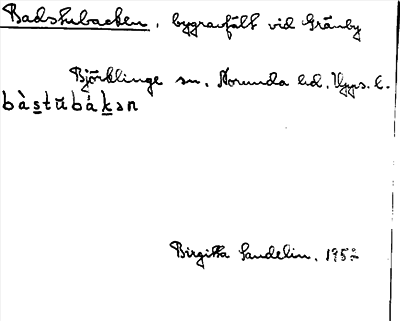 Badstubacken, bygravfält vid Gränby
Björklinge sn, Norunda hd, Upps. l.
bàs̲tŭbák̲ən
Birgitta Sandelin, 1952